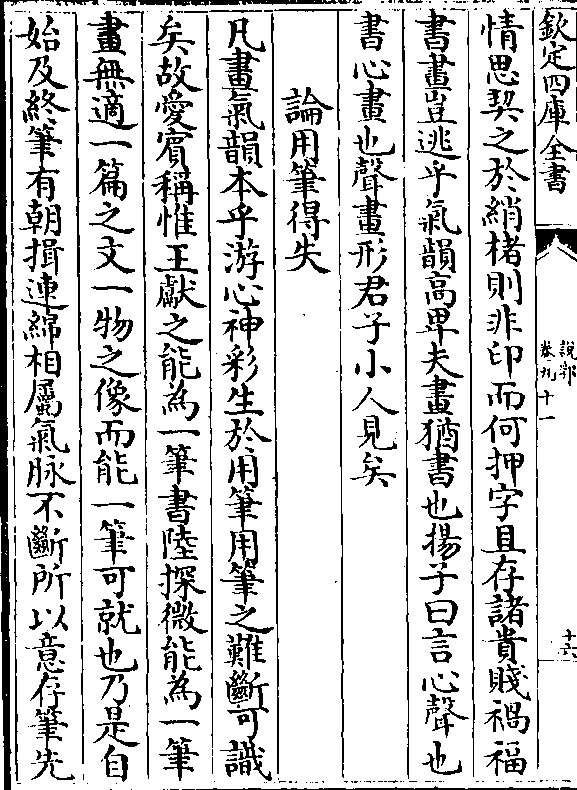 欽定四庫全書
說郛
卷九十一
十六
情思契之於綃楮則非印而何押字且存諸貴賤禍福
書畫豈逃乎氣韻高卑夫畫猶書也揚子曰言心聲也
書心畫也聲畫形君子小人見矣
論用筆得失
凡畫氣韻本乎游心神彩生於用筆用筆之難斷可識
矣故愛賓稱惟王獻之能為一筆書陸探微能為一筆
畫無適一篇之文一物之像而能一筆可就也乃是自
始及終筆有朝揖連綿相屬氣脉不斷所以意存筆先